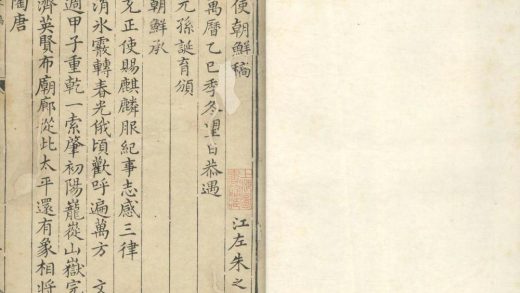 使朝鮮稿
江左朱之
萬曆乙巳季冬望日恭遇
元孫誕育頒
朝鮮承
正使賜麒麟服紀事志感三律
消氷霰轉春光俄頃歡呼遍萬方 文
週甲子重乾一索肇初陽巃嵸山嶽完
濟英賢布廟廊從此太平還有象相將
陶唐